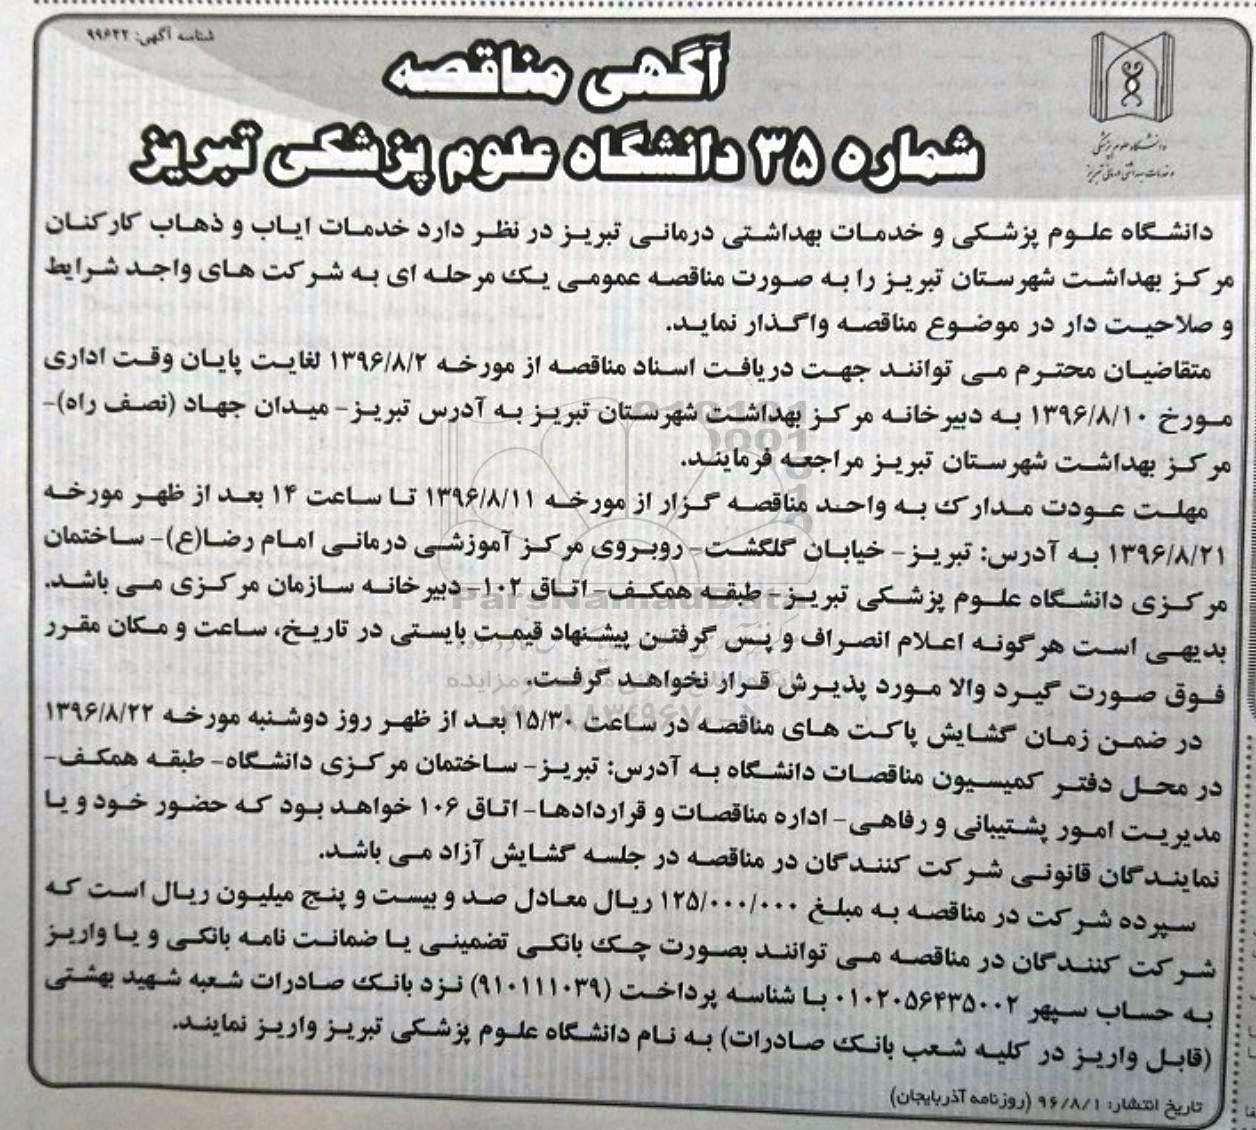 شناسه آگهی: ۹۹۶۲۲
آگهی مناقصه
شماره ۳۵ دانشگاه علوم پزشکی تبریز
دانشگاه علوم پزشکی
و خدمات بهداشتی درمانی تبریز
دانشگاه علوم پزشکی و خدمات بهداشتی درمانی تبریز در نظر دارد خدمات ایاب و ذهاب کارکنان
مرکز بهداشت شهرستان تبریز را به صورت مناقصه عمومی یک مرحله ای به شرکت های واجد شرایط
و صلاحیت دار در موضوع مناقصه واگذار نماید.
متقاضیان محترم می توانند جهت دریافت اسناد مناقصه از مورخه ۱۳۹۶/۸/۲ لغایت پایان وقت اداری
مورخ ۱۳۹۶/۸/۱۰ به دبیرخانه مرکز بهداشت شهرستان تبریز به آدرس تبریز- میدان جهاد (نصف راه)-
مرکز بهداشت شهرستان تبریز مراجعه فرمایند.
مهلت عودت مدارک به واحد مناقصه گزار از مورخه ۱۳۹۶/۸/۱۱ تا ساعت ۱۴ بعد از ظهر مورخه
۱۳۹۶/۸/۲۱ به آدرس: تبریز- خیابان گلگشت- روبروی مرکز آموزشی درمانی امام رضا(ع)- ساختمان
مرکزی دانشگاه علوم پزشکی تبریز- طبقه همکف- اتاق ۱۰۲- دبیرخانه سازمان مرکزی می باشد.
بدیهی است هرگونه اعلام انصراف و پس گرفتن پیشنهاد قیمت بایستی در تاریخ، ساعت و مکان مقرر
فوق صورت گیرد والا مورد پذیرش قرار نخواهد گرفت.
در ضمن زمان گشایش پاکت های مناقصه در ساعت ۱۵/۳۰ بعد از ظهر روز دوشنبه مورخه ۱۳۹۶/۸/۲۲
در محل دفتر کمیسیون مناقصات دانشگاه به آدرس: تبریز- ساختمان مرکزی دانشگاه- طبقه همکف-
مدیریت امور پشتیبانی و رفاهی- اداره مناقصات و قراردادها- اتاق ۱۰۶ خواهد بود که حضور خود و یا
نمایندگان قانونی شرکت کنندگان در مناقصه در جلسه گشایش آزاد می باشد.
سپرده شرکت در مناقصه به مبلغ ۱۲۵/۰۰۰/۰۰۰ ریال معادل صد و بیست و پنج میلیون ریال است که
شرکت کنندگان در مناقصه می توانند بصورت چک بانکی تضمینی یا ضمانت نامه بانکی و یا واریز
به حساب سپهر ۰۱۰۲۰۵۶۴۳۵۰۰۲ با شناسه پرداخت (۹۱۰۱۱۱۰۳۹) نزد بانک صادرات شعبه شهید بهشتی
(قابل واریز در کلیه شعب بانک صادرات) به نام دانشگاه علوم پزشکی تبریز واریز نمایند.
تاریخ انتشار: ۹۶/۸/۱ (روزنامه آذربایجان)